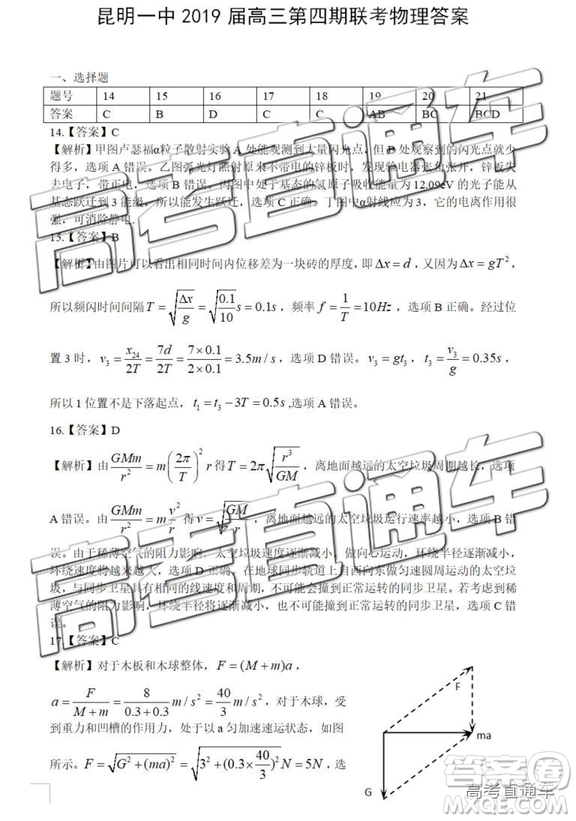 昆明一中 2019 届高三第四期联考物理答案
一、选择题
题号 14 15 16 17 18 19 20 21
答案 C B D C C AB BC BCD
14.【答案】C
【解析】甲图卢瑟福α粒子散射实验 A 处能观测到大量闪光点，但 B 处看到的闪光点就少
得多，选项 A 错误。乙图弧光灯照射原来不带电的锌板时，发现验电器指针张开，锌板失
去电子，带正电，选项 B 错误。丙图中处于基态的氢原子吸收能量为 12.09eV 的光子能从
基态跃迁到 3 能级，所以能发生跃迁，选项 C 正确。丁图中α射线应为 3，它的电离作用很
强，可消除静电。
15.【答案】B
【解析】由图片可以看出相同时间内位移差为一块砖的厚度，即 Δx = d，又因为 Δx = gT²，
所以频闪时间间隔 T = √(Δx/g) = √(0.1/10) s = 0.1s，频率 f = 1/T = 10Hz，选项 B 正确。位
置 3 时，v₃ = x₂₄/2T = 7d/2T = (7×0.1)/(2×0.1) = 3.5m/s，选项 D 错误。v₃ = gt₃，t₃ = v₃/g = 0.35s，
所以 1 位置不是下落起点，t₁ = t₃ − 3T = 0.5s，选项 A 错误。
16.【答案】D
【解析】由 GMm/r² = m(2π/T)² r 得 T = 2π√(r³/GM)，离地面越远的太空垃圾周期越长，选项
A 错误。由 GMm/r = m v²/r 得 v = √(GM/r)，离地面越远的太空垃圾运行速率越小，选项 B 错
误。由于稀薄空气的阻力影响，太空垃圾速度逐渐减小，环绕半径逐渐减小，
环绕速度将越来越大，选项 D 正确。在地球同步轨道上自西向东做匀速圆周运动的太空垃
圾，与同步卫星具有相同的线速度和周期，不可能与正常运转的同步卫星相撞。若考虑到稀
薄空气的阻力影响，环绕半径将逐渐减小，也不可能与正常运转的同步卫星相撞，选项 C 错
误。
17.【答案】C
【解析】对于木板和木球整体，F = (M + m)a，
a = F/(M + m) = 8/(0.3+0.3) m/s² = 40/3 m/s²，对于木球，受
到重力和凹槽的作用力，处于以 a 匀加速运状态，如图
所示。F = √(G² + (ma)²) = √(3² + (0.3×40/3)²) N = 5N，选
F
ma
G
高考直通车
答案圈
MXQE.COM
高考直通车